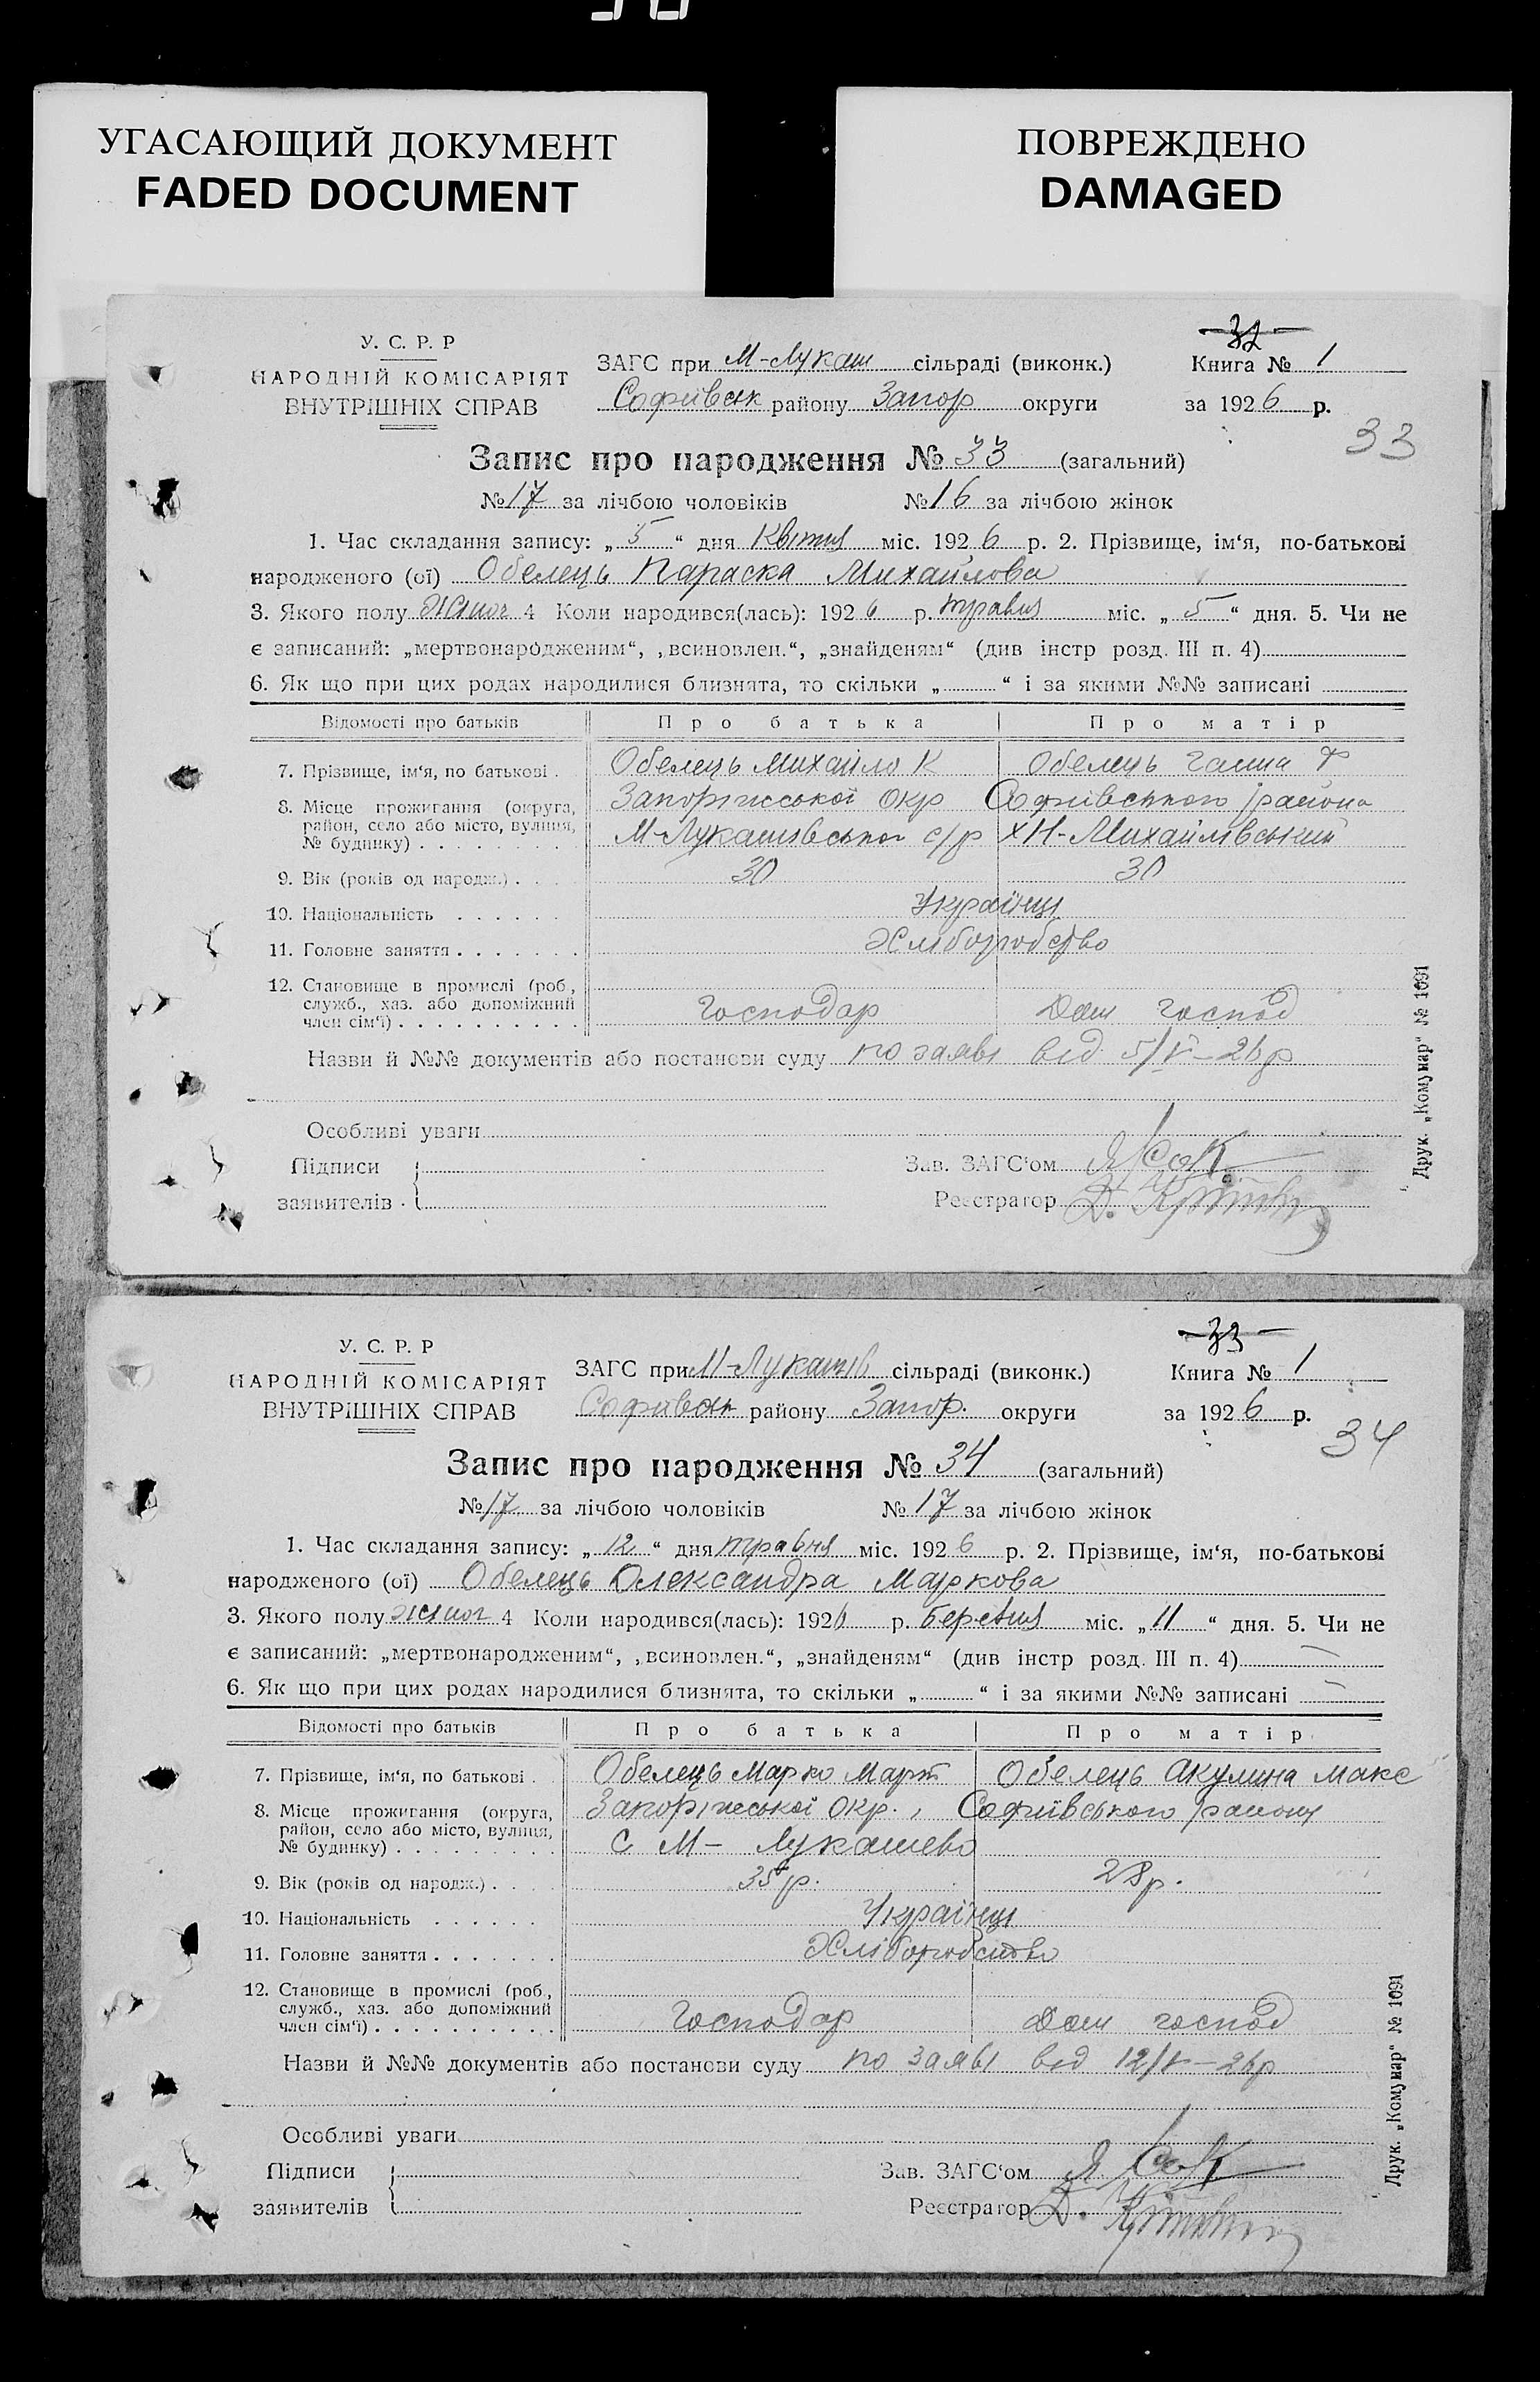 УГАСАЮЩИЙ ДОКУМЕНТ
FADED DOCUMENT
ПОВРЕЖДЕНО
DAMAGED
32
У. С. Р. Р
НАРОДНІЙ КОМІСАРІЯТ
ВНУТРІШНІХ СПРАВ
ЗАГС при М-Лукаш сільраді (виконк.)
Софиївськ району Запор округи
Книга № 1
за 1926 р.
33
Запис про народження № 33 (загальний)
№ 17 за лічбою чоловіків № 16 за лічбою жінок
1. Час складання запису: „ 5 “ дня Квітня міс. 1926 р. 2. Прізвище, ім‘я, по-батькові
народженого (ої) Обелець Параска Михайлова
3. Якого полу жіноч 4 Коли народився(лась): 1926 р. травня міс. „ 5 “ дня. 5. Чи не
є записаний: „мертвонародженим“, „всиновлен.“, „знайденям“ (див інстр розд. III п. 4)
6. Як що при цих родах народилися близнята, то скільки „ “ і за якими №№ записані
Відомості про батьків Про батька Про матір
7. Прізвище, ім‘я, по батькові . Обелець Михайло К Обелець Ганна Ф
8. Місце проживання (округа, район, село або місто, вулиця, № будинку) Запоріжської окр Софиївського района
М-Лукашівської с/р х Н-Михайлівський
9. Вік (років од народж.) 30 30
10. Національність Українці
11. Головне заняття Хліборобство
12. Становище в промислі (роб., служб., хаз. або допоміжний член сім‘ї) Господар Дом господ
Назви й №№ документів або постанови суду по заяві від 5/V–26р
Особливі уваги
Підписи
заявителів
Зав. ЗАГС‘ом
Реєстратор
Друк. „Комунар“ № 1091
33
У. С. Р. Р
НАРОДНІЙ КОМІСАРІЯТ
ВНУТРІШНІХ СПРАВ
ЗАГС при М-Лукашів сільраді (виконк.)
Софиївськ району Запор. округи
Книга № 1
за 1926 р.
34
Запис про народження № 34 (загальний)
№ 17 за лічбою чоловіків № 17 за лічбою жінок
1. Час складання запису: „ 12 “ дня травня міс. 1926 р. 2. Прізвище, ім‘я, по-батькові
народженого (ої) Обелець Олександра Маркова
3. Якого полу жіноч 4 Коли народився(лась): 1926 р. березня міс. „ 11 “ дня. 5. Чи не
є записаний: „мертвонародженим“, „всиновлен.“, „знайденям“ (див інстр розд. III п. 4)
6. Як що при цих родах народилися близнята, то скільки „ “ і за якими №№ записані
Відомості про батьків Про батька Про матір
7. Прізвище, ім‘я, по батькові . Обелець Марко Март Обелець Акулина Макс
8. Місце проживання (округа, район, село або місто, вулиця, № будинку) Запоріжської окр., Софиївського району
С М- Лукашево
9. Вік (років од народж.) 35 р. 28р.
10. Національність Українці
11. Головне заняття Хліборобство
12. Становище в промислі (роб., служб., хаз. або допоміжний член сім‘ї) Господар Дом господ
Назви й №№ документів або постанови суду по заяві від 12/V–26р
Особливі уваги
Підписи
заявителів
Зав. ЗАГС‘ом
Реєстратор
Друк. „Комунар“ № 1091